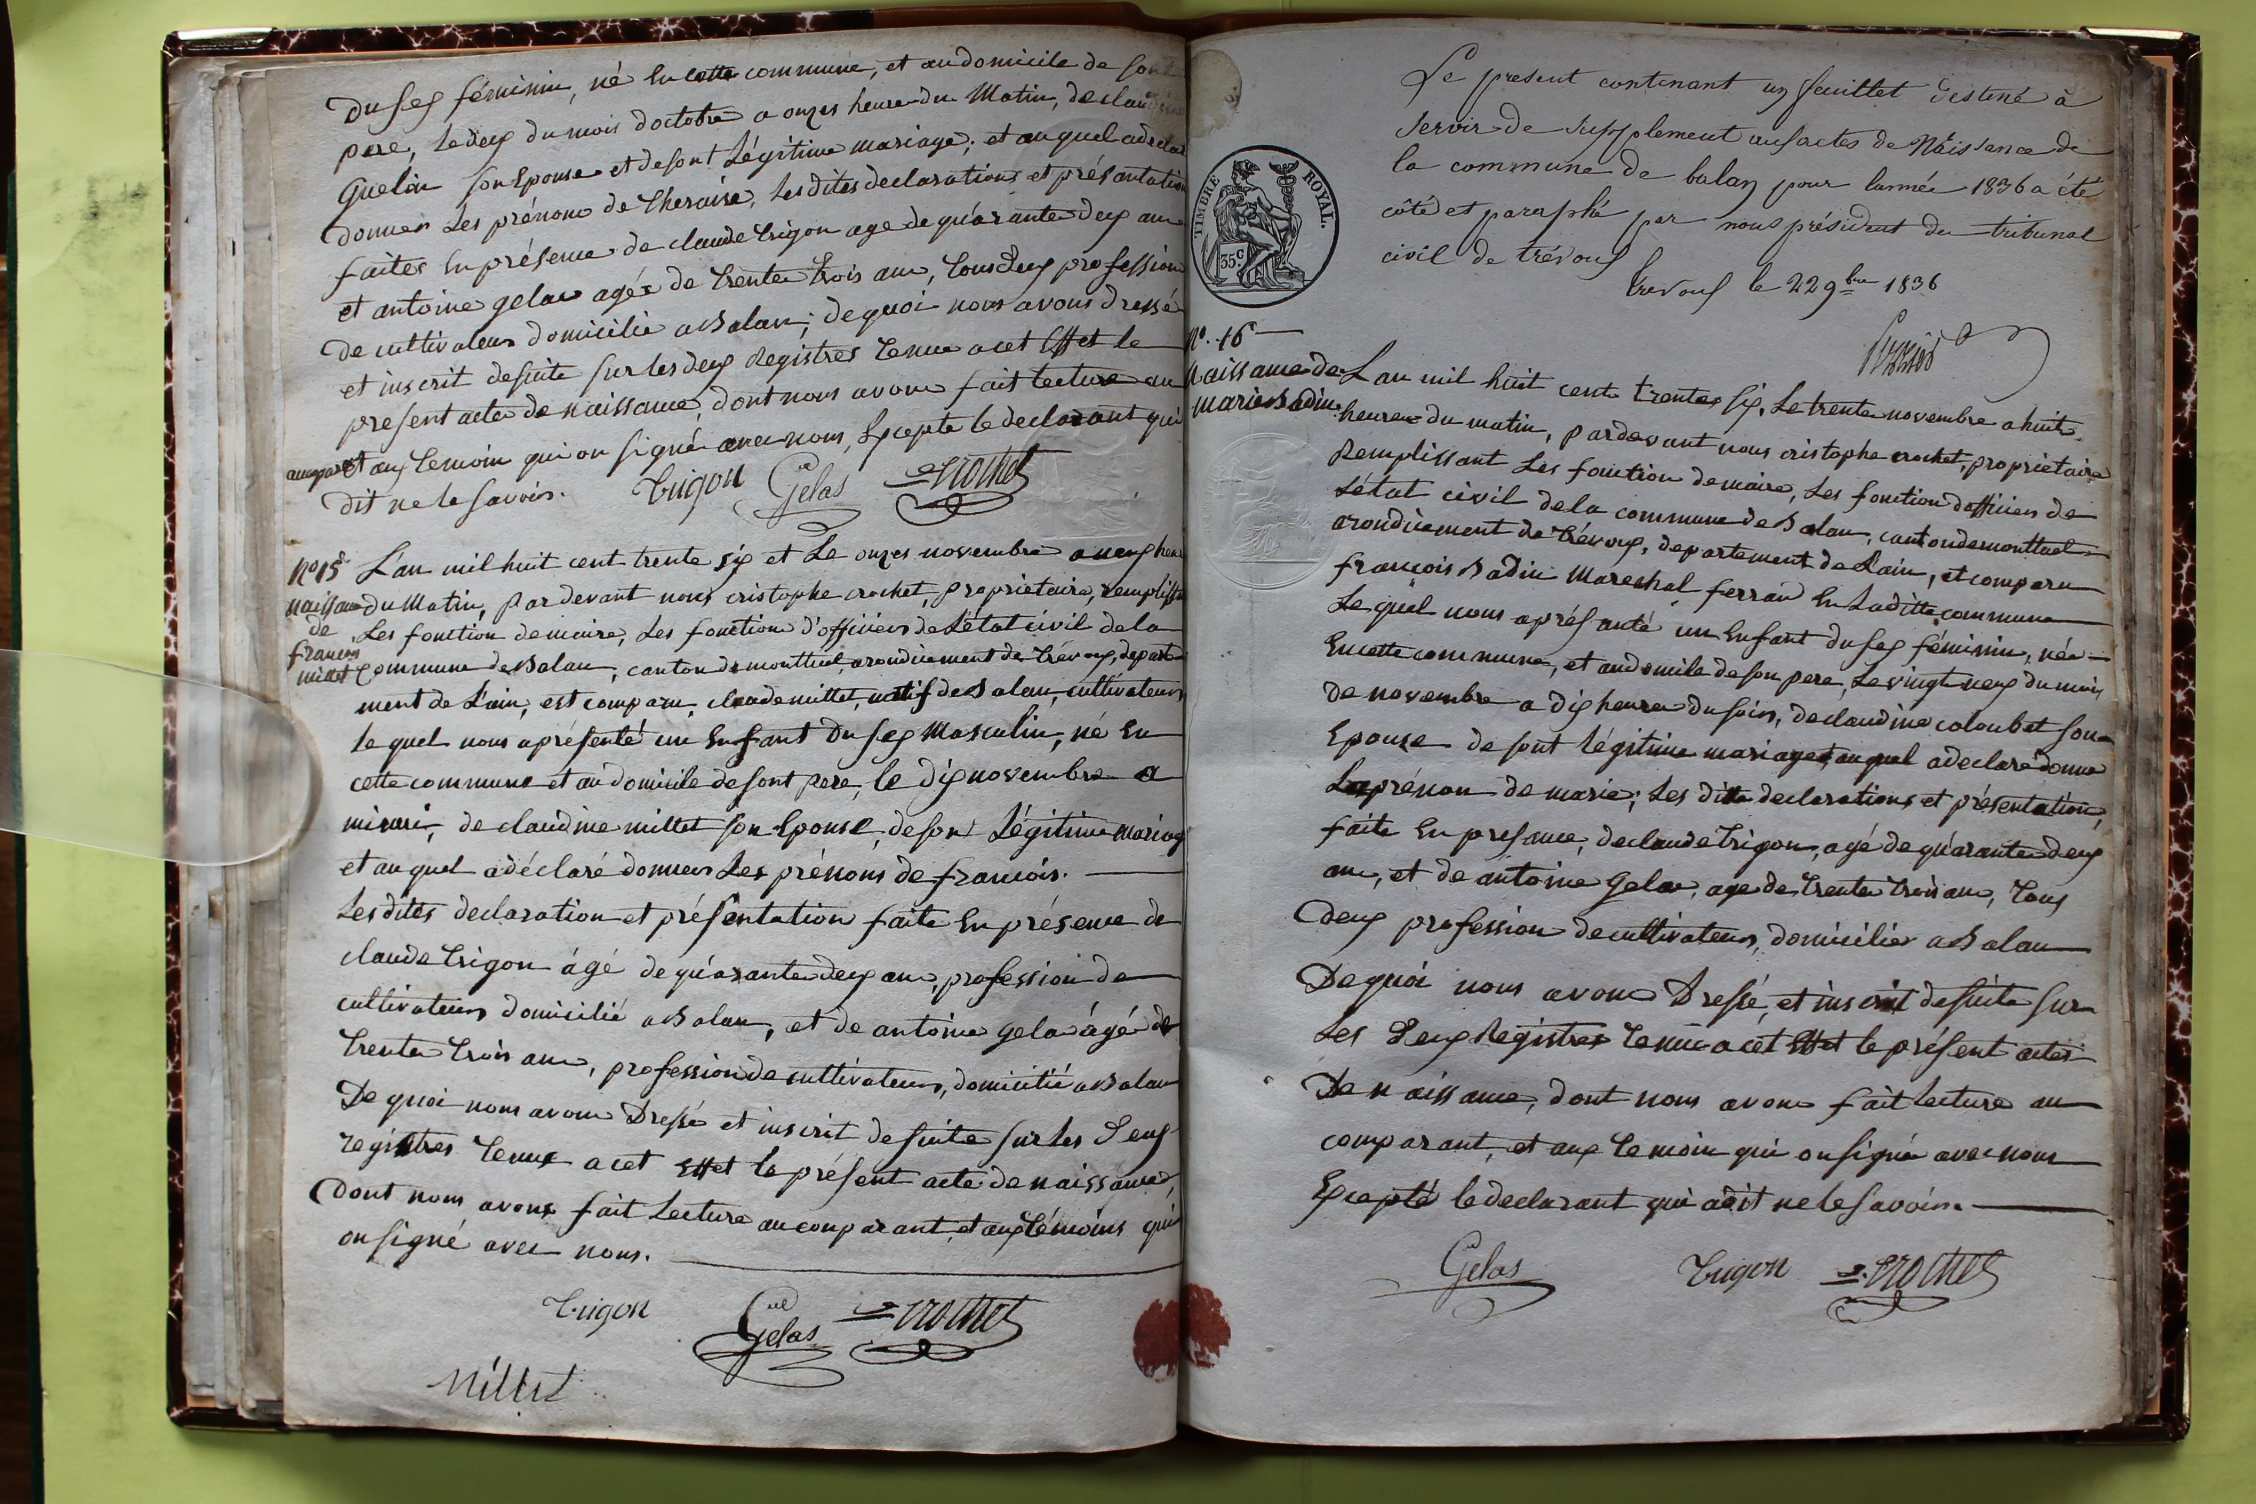 du sex féminin, né En cette commune, et au domicile de sont
pere, le deux du mois doctobre a onzes heure du Matin, de claudine
guelin son Epouse et de sont Légitime mariage; et au quel a declaré
donner les prénoms de Theraise, les dites declarations et présantation
faites En présence de claude trigon age de quarante deux ans
et antoine gelas agé de trente trois ans, tous deux profession
de cultivateur domicilié a Balan; de quoi nous avons dressé
et inscrit de suite sur les deux Registres tenue a cet Effet le
present acte de naissance, dont nous avons fait lecture au
comparant et aux temoin qui on signé avec nous, Excepte le declarant qui
dit ne le savoir. trigon Gelas crochet
No 15
naissance
de
francois
millet
L'an mil huit cent trente six et Le onzes novembre a neuf heure
du Matin, par devant nous cristophe crochet, proprietaire, remplissant
Les fonction de maire, Les fonction d'officier de L'état civil de la
Commune de Balan, canton de montluel, arondicement de Trévoux, departe
ment de L'ain, est comparu, claude millet, natif de Balan, cultivateur
le quel nous a présenté un Enfant du sex Masculin, né En
cette commune et au domicile de sont pere, le dix novembre a
minuit, de claudine millet son Epouse, de son Légitime mariage
et au quel a déclaré donner Les prénoms de francois.
Les dites declaration et présentation faite En présence de
claude trigon âgé de quarante deux ans, profession de
cultivateur domicilié a Balan, et de antoine gelas âgé de
trente trois ans, profession de cultivateur, domicilié a Balan
De quoi nous avons Dressé et inscrit de suite sur les Deux
registres tenue a cet Effet le présent acte de naissance,
Dont nous avons fait Lecture au comparant, et aux témoins qui
on signé avec nous.
trigon Gelas crochet
Millet
Le present contenant un feuillet destiné à
servir de supplement aux actes de Naissance de
la commune de balan pour lannée 1836 a été
côté et paraphé par nous président du tribunal
civil de trévoux
Trevoux le 22 9bre 1836
TIMBRE ROYAL
35 c
No. 16
Naissance de
marie Badin
L an mil huit cent trente six, Le trente novembre a huit
heures du matin, pardevant nous cristophe crochet, proprietaire
Remplissant Les fonction de maire, Les fonction d'officier de
L'état civil de la commune de Balan, canton de montluel
arondicement de Trévoux, departement de Lain, et comparu
françois Badin Mareshal ferrand En La ditte commune
Le quel nous a présanté un Enfant du sex féminin, née
En cette commune, et au domicile de son pere, Le vingt neuf du mois
de novembre a dix heures du soir, de claudine coloubet son
Epouse de sont légitime mariage; au quel a declaré donné
Le prénom de marie; Les dite declarations et présentation,
faite En presance, de claude trigon, agé de quarante deux
ans, et de antoine Gelas, age de trente trois ans, tous
deux profession de cultivateur, domicilier a Balan
De quoi nous avons Dressé, et inscrit de suite sur
Les Deux Registres tenue a cét Effet le présent actes
De naissance, dont nous avons fait lecture au
comparant, et aux temoin qui on signé avec nous
Excepté le declarant qui a dit ne le savoir.
Gelas trigon crochet